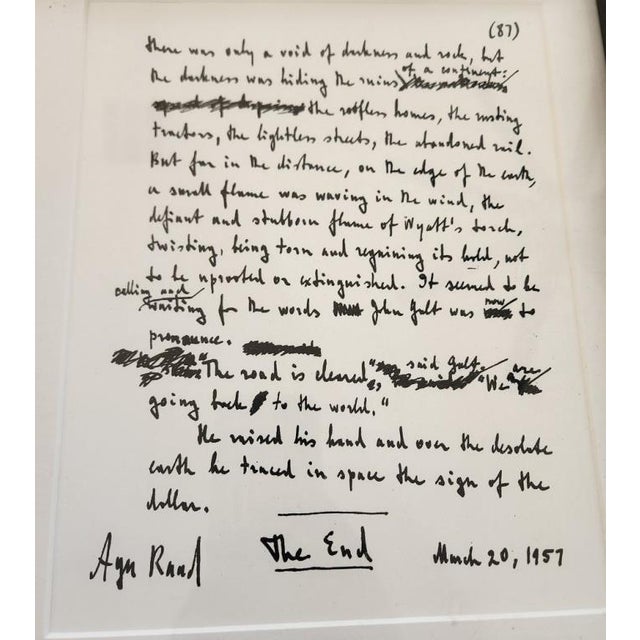 (87)
there was only a void of darkness and rock, but
the darkness was hiding the ruins of a continent:
the roofless homes, the rusting
tractors, the lightless streets, the abandoned rail.
But far in the distance, on the edge of the earth,
a small flame was waving in the wind, the
defiant and stubborn flame of Wyatt's torch,
twisting, being torn and regaining its hold, not
to be uprooted or extinguished. It seemed to be
calling and
waiting for the words John Galt was now to
pronounce.
"The road is cleared," said Galt. "We are
going back to the world."
He raised his hand and over the desolate
earth he traced in space the sign of the
dollar.
The End
Ayn Rand
March 20, 1957